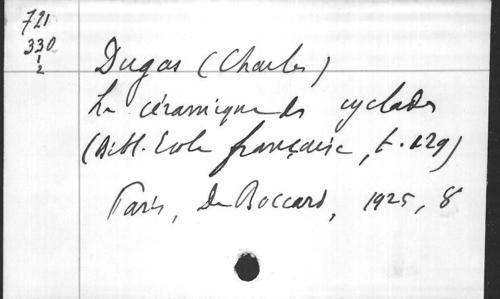 721
330
1
2
Dugas (Charles)
La céramique des cyclades
(Bibl. Ecole française, t. 129)
Paris, De Boccard, 1925, 8°